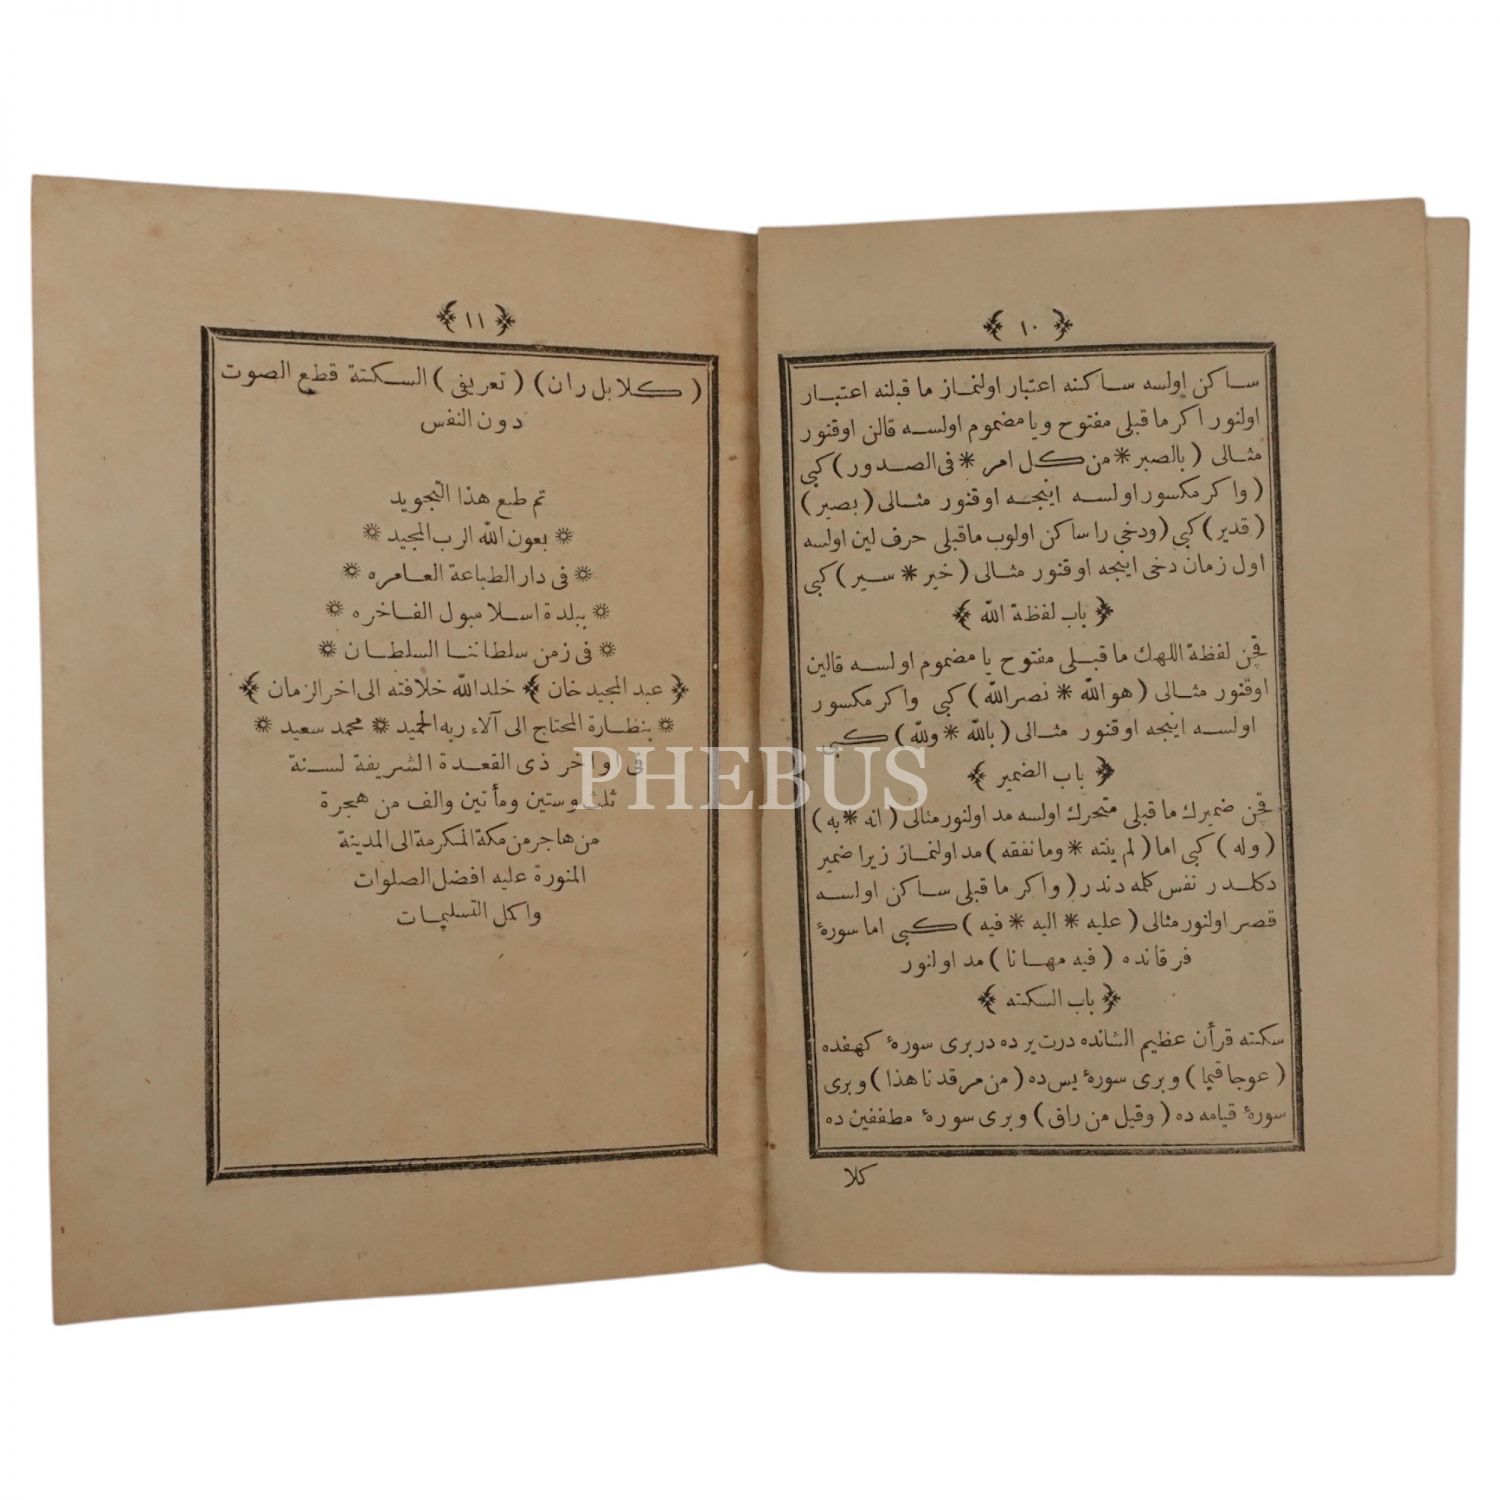 ﴿ ١٠ ﴾
ساكن اولسه ساكنه اعتبار اولنماز ما قبلنه اعتبار
اولنور اكر ما قبلى مفتوح ويا مضموم اولسه قالن اوقنور
مثالى ( بالصبر * من كل امر * فى الصدور ) كبى
( واكر مكسور اولسه اينجه اوقنور مثالى ( بصير )
( قدير ) كبى ( ودخى را ساكن اولوب ماقبلى حرف لين اولسه
اول زمان دخى اينجه اوقنور مثالى ( خير * سير ) كبى
﴿ باب لفظة الله ﴾
قچن لفظة اللهك ما قبلى مفتوح يا مضموم اولسه قالين
اوقنور مثالى ( هو الله * نصر الله ) كبى واكر مكسور
اولسه اينجه اوقنور مثالى ( بالله * ولله ) كبى
﴿ باب الضمير ﴾
قچن ضميرك ما قبلى متحرك اولسه مد اولنور مثالى ( انه * به )
( وله ) كبى اما ( لم ينته * وما نفقه ) مد اولنماز زيرا ضمير
دكلدر نفس كلمه دندر ( واكر ما قبلى ساكن اولسه
قصر اولنور مثالى ( عليه * اليه * فيه ) كبى اما سورۀ
فرقانده ( فيه مهانا ) مد اولنور
﴿ باب السكته ﴾
سكته قرأن عظيم الشانده درت يرده در برى سورۀ كهفده
( عوجا قيما ) وبرى سورۀ يس ده ( من مرقدنا هذا ) وبرى
سورۀ قيامه ده ( وقيل من راق ) وبرى سورۀ مطففين ده
كلا
﴿ ١١ ﴾
( كلا بل ران ) ( تعريفى ) السكتة قطع الصوت
دون النفس
تم طبع هذا التجويد
* بعون الله الرب المجيد *
* فى دار الطباعة العامره *
* ببلدة اسلامبول الفاخره *
* فى زمن سلطاننا السلطان *
﴿ عبد المجيد خان ﴾ خلد الله خلافته الى اخر الزمان
* بنظارة المحتاج الى آلاء ربه الحميد * محمد سعيد *
فى اواخر ذى القعدة الشريفة لسنة
ثلث وستين ومأتين والف من هجرة
من هاجر من مكة المكرمة الى المدينة
المنورة عليه افضل الصلوات
واكمل التسليمات
PHEBUS